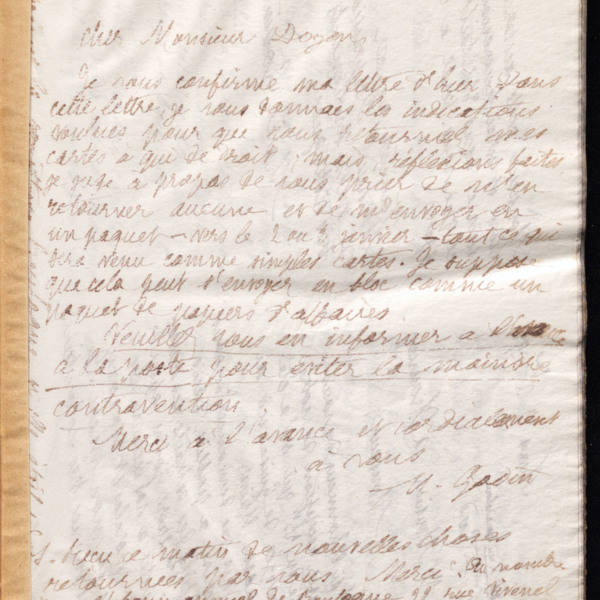 cher Monsieur Doyen,
Je vous confirme ma lettre d'hier. Dans
cette lettre je vous donnais les indications
voulues pour que vous retourniez mes
cartes à qui de droit; mais, réflexions faites,
je juge à propos de vous prier de ne m'en
retourner aucune et de m'envoyer en
un paquet — vers le 2 ou 3 janvier — tout ce qui
sera venu comme simples cartes. Je suppose
que cela peut s'envoyer en bloc comme un
paquet de papiers d'affaires.
Veuillez vous en informer à l'avance
à la poste pour éviter la moindre
contravention.
Merci à l'avance et cordialement
à vous
Godin
ce matin de nouvelles choses
retournées par vous. Merci. Au nombre
de Boulogne 22 rue